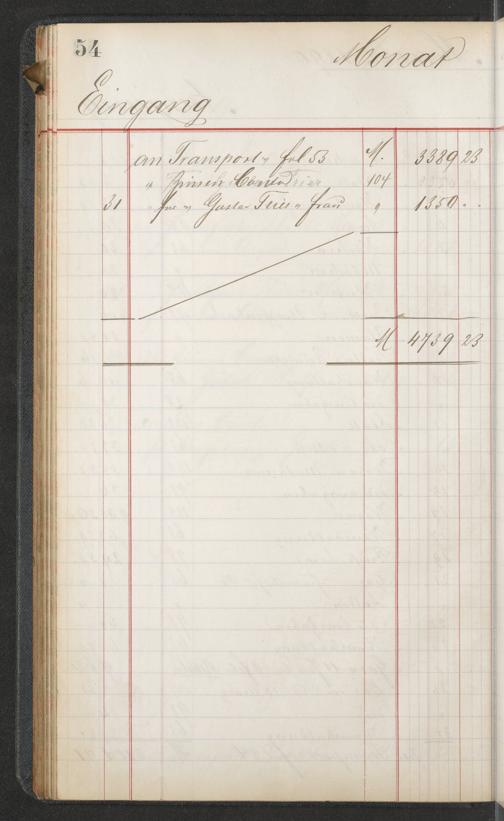 54
Monat
Eingang
an Transport v fol 53 M. 3389 23
" Zinsen Conto 104
31 " Gustav " Frau " 1350 . .
M 4739 23